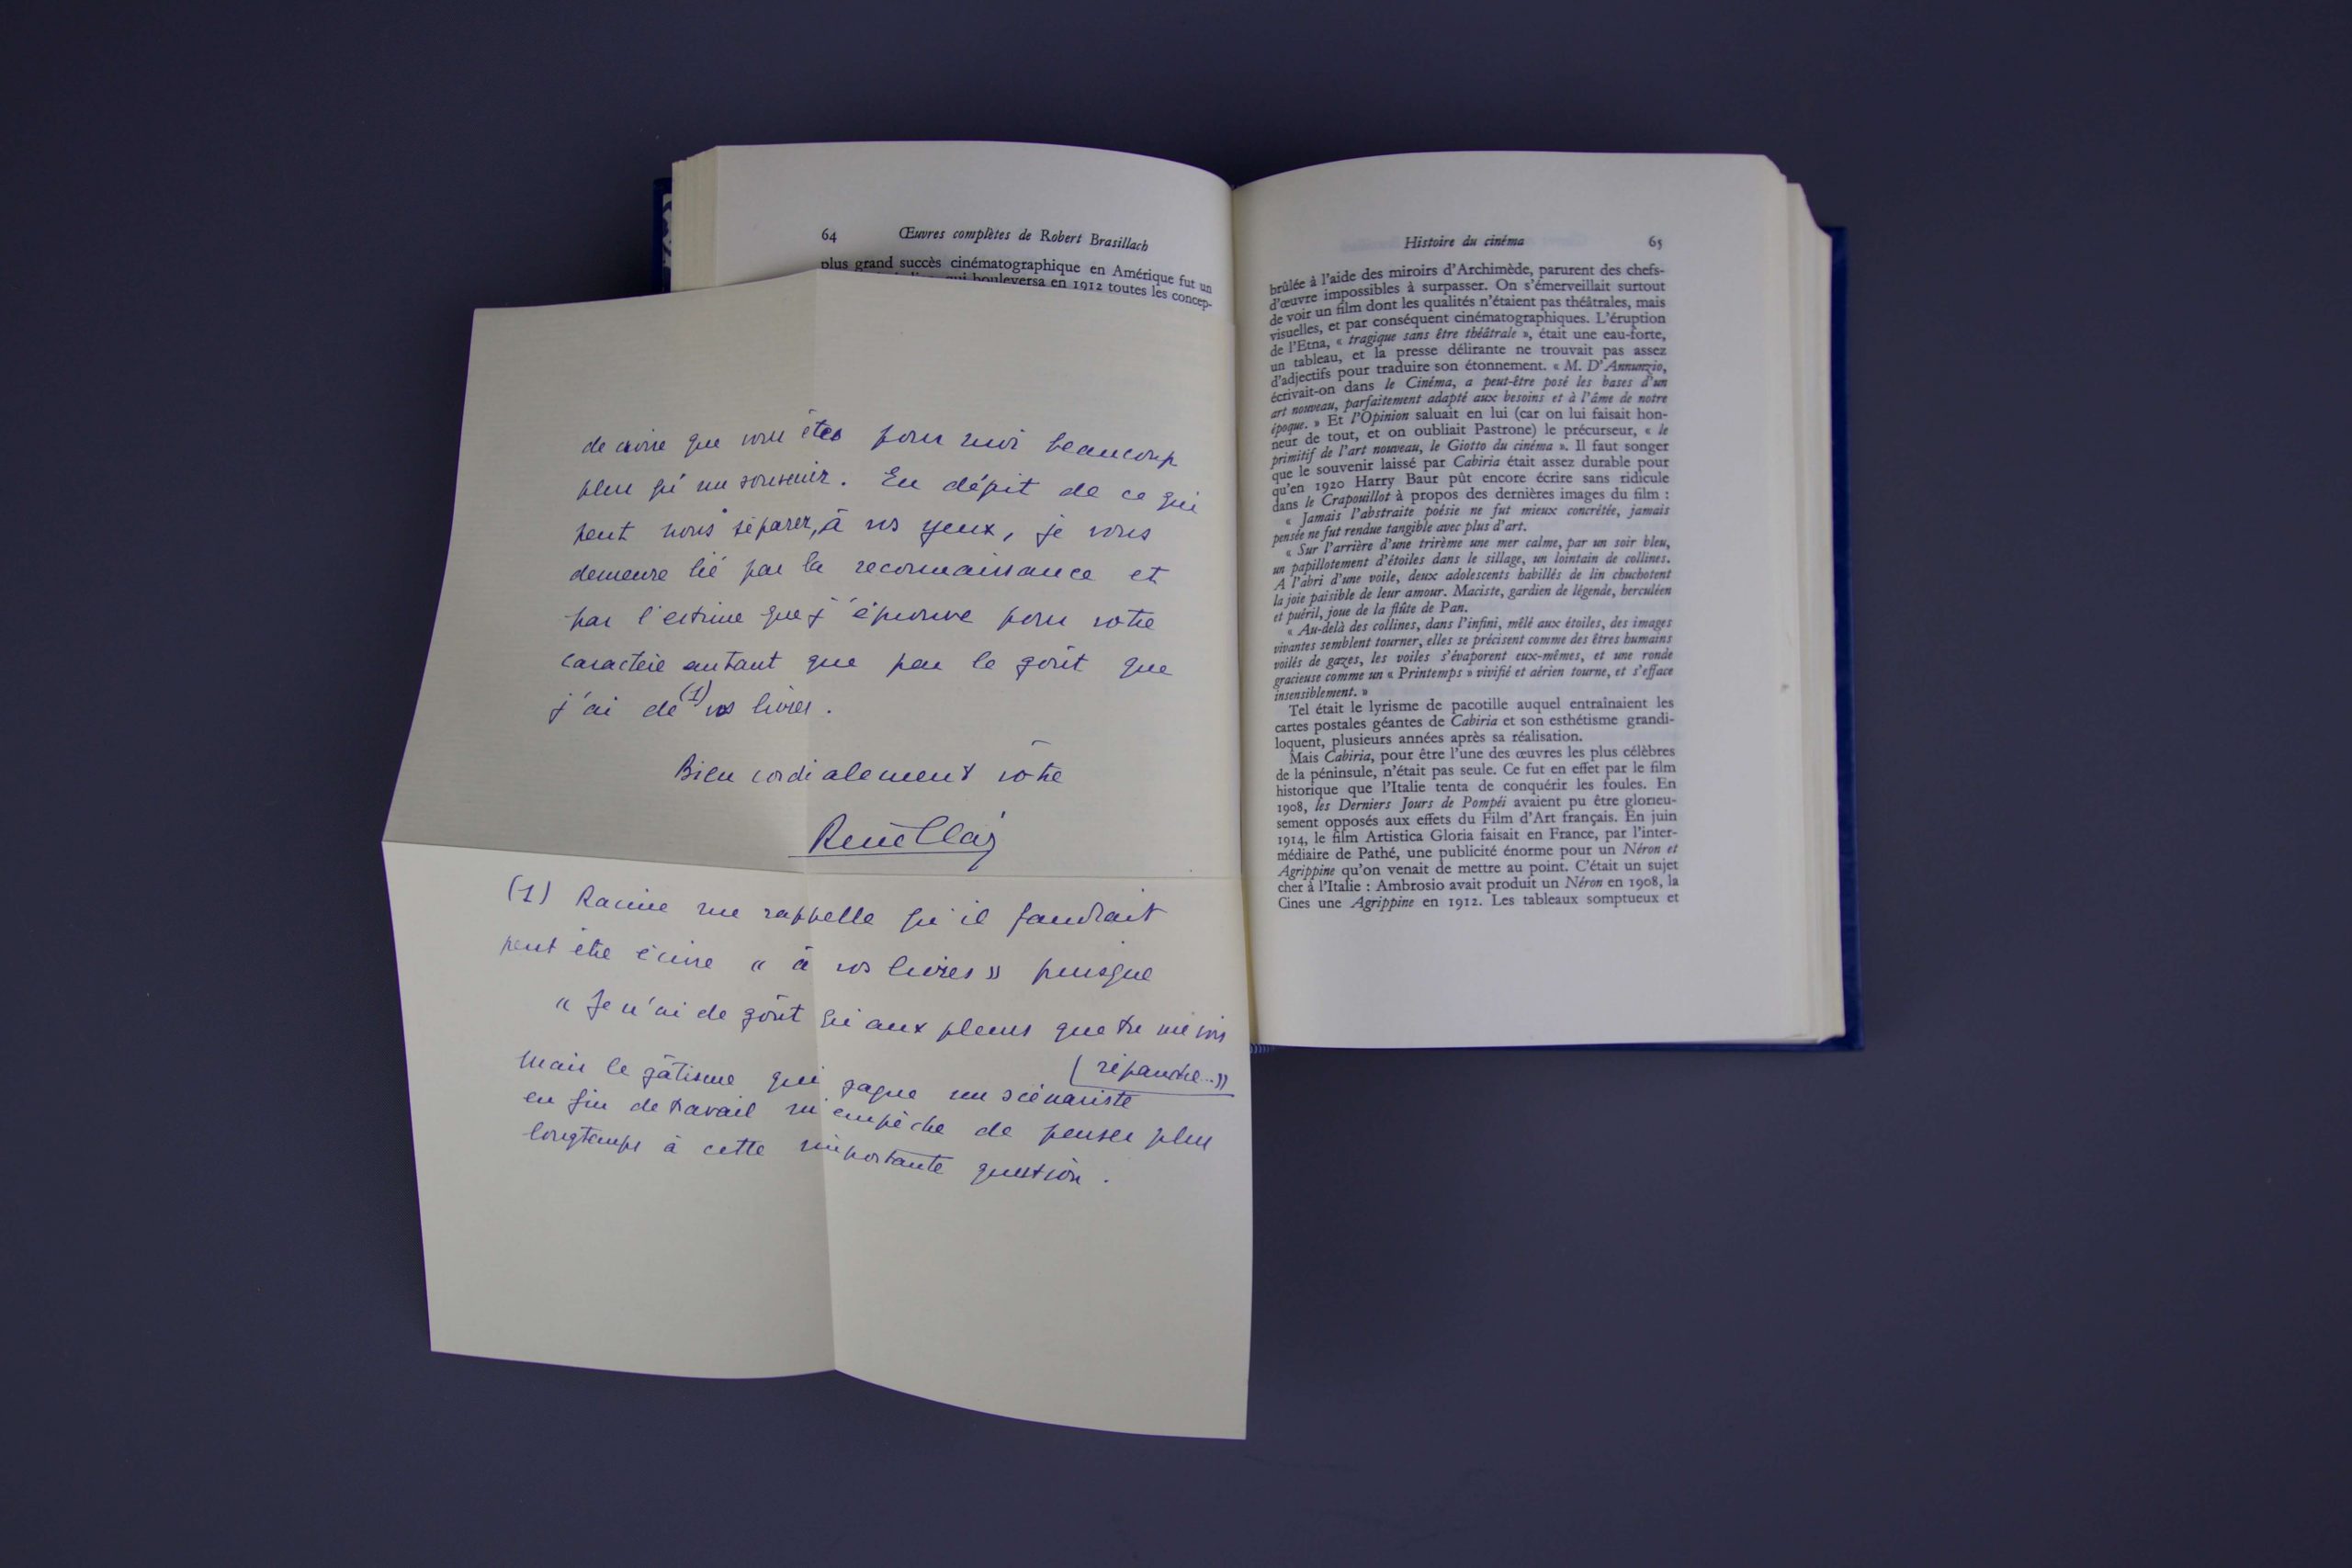 64 Œuvres complètes de Robert Brasillach
plus grand succès cinématographique en Amérique fut un
qui bouleversa en 1912 toutes les concep-
de croire que vous êtes pour moi beaucoup
plus qu'un souvenir. En dépit de ce qui
peut nous séparer, à vos yeux, je vous
demeure lié par la reconnaissance et
par l'estime que j'éprouve pour votre
caractère autant que par le goût que
j'ai de (1) vos livres.
Bien cordialement vôtre
René Clair
(1) Racine me rappelle qu'il faudrait
peut être écrire « à vos livres » puisque
« Je n'ai de goût qu'aux pleurs que tu me vois
répandre... »
Mais le gâtisme qui gagne un scénariste
en fin de travail m'empêche de penser plus
longtemps à cette importante question.
Histoire du cinéma 65
brûlée à l'aide des miroirs d'Archimède, parurent des chefs-
d'œuvre impossibles à surpasser. On s'émerveillait surtout
de voir un film dont les qualités n'étaient pas théâtrales, mais
visuelles, et par conséquent cinématographiques. L'éruption
de l'Etna, « tragique sans être théâtrale », était une eau-forte,
un tableau, et la presse délirante ne trouvait pas assez
d'adjectifs pour traduire son étonnement. « M. D'Annunzio,
écrivait-on dans le Cinéma, a peut-être posé les bases d'un
art nouveau, parfaitement adapté aux besoins et à l'âme de notre
époque. » Et l'Opinion saluait en lui (car on lui faisait hon-
neur de tout, et on oubliait Pastrone) le précurseur, « le
primitif de l'art nouveau, le Giotto du cinéma ». Il faut songer
que le souvenir laissé par Cabiria était assez durable pour
qu'en 1920 Harry Baur pût encore écrire sans ridicule
dans le Crapouillot à propos des dernières images du film :
« Jamais l'abstraite poésie ne fut mieux concrétée, jamais
pensée ne fut rendue tangible avec plus d'art.
« Sur l'arrière d'une trirème une mer calme, par un soir bleu,
un papillotement d'étoiles dans le sillage, un lointain de collines.
A l'abri d'une voile, deux adolescents habillés de lin chuchotent
la joie paisible de leur amour. Maciste, gardien de légende, herculéen
et puéril, joue de la flûte de Pan.
« Au-delà des collines, dans l'infini, mêlé aux étoiles, des images
vivantes semblent tourner, elles se précisent comme des êtres humains
voilés de gazes, les voiles s'évaporent eux-mêmes, et une ronde
gracieuse comme un « Printemps » vivifié et aérien tourne, et s'efface
insensiblement. »
Tel était le lyrisme de pacotille auquel entraînaient les
cartes postales géantes de Cabiria et son esthétisme grandi-
loquent, plusieurs années après sa réalisation.
Mais Cabiria, pour être l'une des œuvres les plus célèbres
de la péninsule, n'était pas seule. Ce fut en effet par le film
historique que l'Italie tenta de conquérir les foules. En
1908, les Derniers Jours de Pompéi avaient pu être glorieu-
sement opposés aux effets du Film d'Art français. En juin
1914, le film Artistica Gloria faisait en France, par l'inter-
médiaire de Pathé, une publicité énorme pour un Néron et
Agrippine qu'on venait de mettre au point. C'était un sujet
cher à l'Italie : Ambrosio avait produit un Néron en 1908, la
Cines une Agrippine en 1912. Les tableaux somptueux et